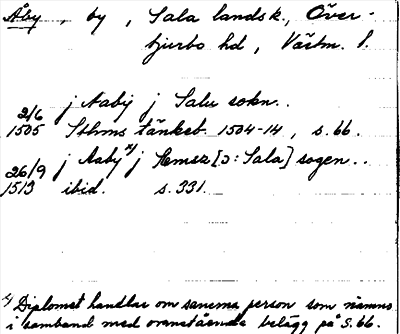 Åby, by, Sala landsk., Över-
tjurbo hd, Västm. l.
2/6 j Aabij j Salu sokn..
1505 Sthms tänkeb. 1504-14, s. 66.
26/9 j Aabij x) j Hemsz [ɔ: Sala] sogen..
1513 ibid. s. 331.
x) Diplomet handlar om samma person som nämns
i samband med ovanstående belägg på s. 66.